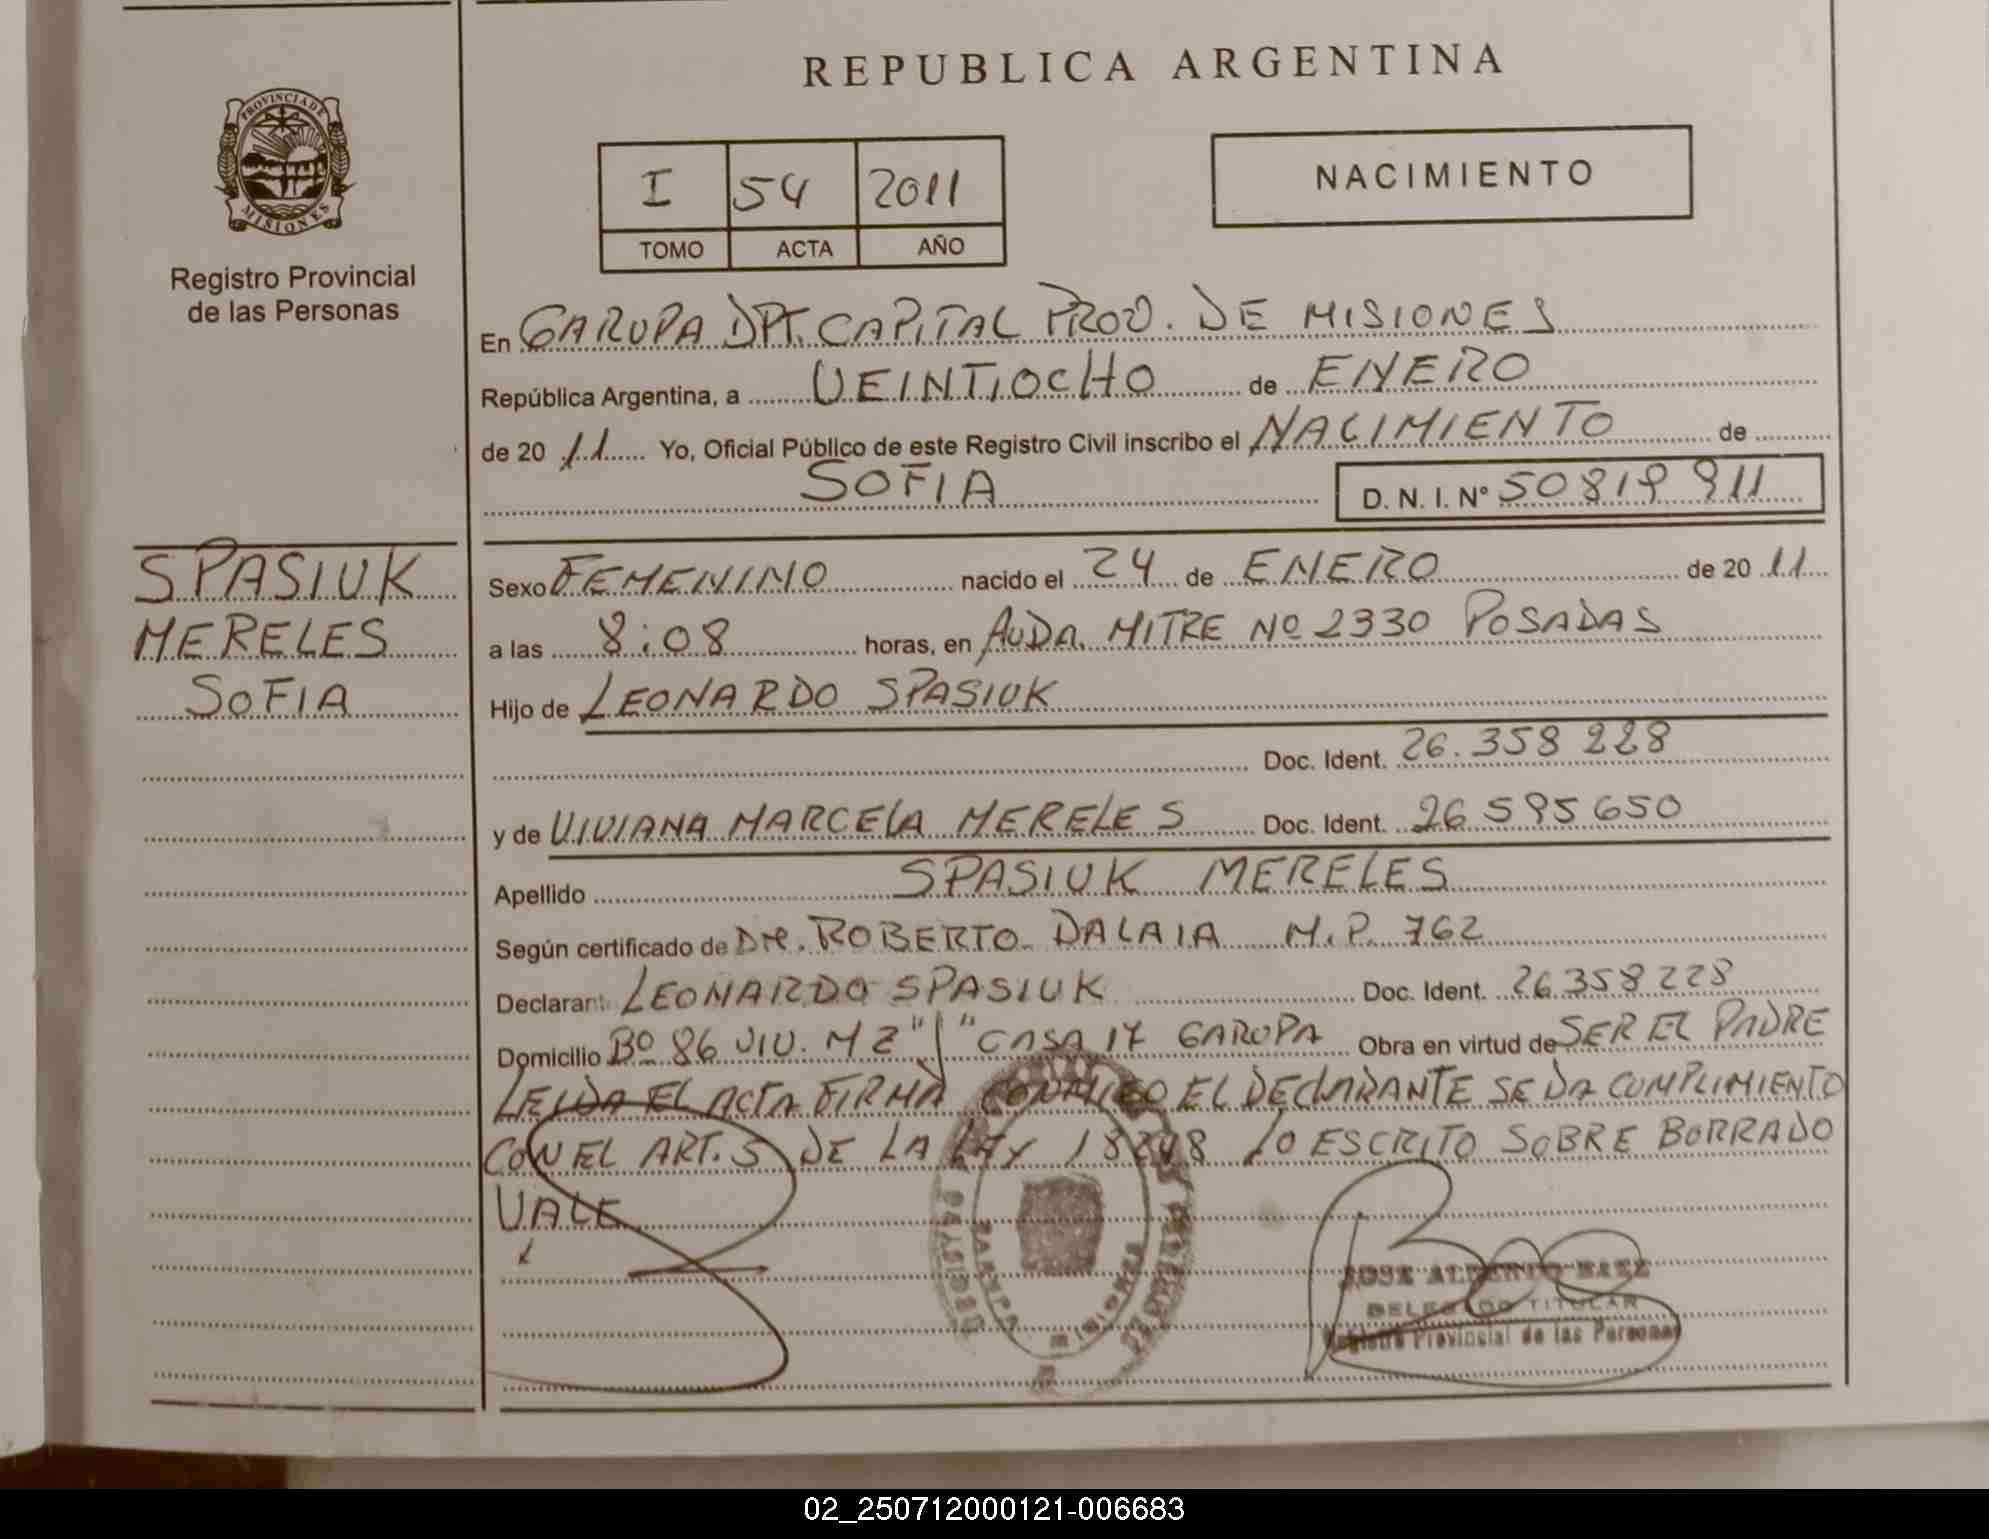 REPUBLICA ARGENTINA
PROVINCIA DE
MISIONES
Registro Provincial
de las Personas
I 54 2011
TOMO ACTA AÑO
NACIMIENTO
En GARUPA DPT. CAPITAL PROV. DE MISIONES
República Argentina, a VEINTIOCHO de ENERO
de 20 11 Yo, Oficial Público de este Registro Civil inscribo el NACIMIENTO de
SOFIA D. N. I. Nº 50819911
SPASIUK
MERELES
SOFIA
Sexo FEMENINO nacido el 24 de ENERO de 20 11
a las 8:08 horas, en AVDA. MITRE Nº 2330 POSADAS
Hijo de LEONARDO SPASIUK
Doc. Ident. 26.358 228
y de VIVIANA MARCELA MERELES Doc. Ident. 26 595 650
Apellido SPASIUK MERELES
Según certificado de DR. ROBERTO DALAIA M.P. 762
Declarant LEONARDO SPASIUK Doc. Ident. 26 358 228
Domicilio Bº 86 VIV. MZ "J" CASA 17 GARUPA Obra en virtud de SER EL PADRE
LEIDA EL ACTA FIRMA CONMIGO EL DECLARANTE SE DA CUMPLIMIENTO
CON EL ART. 5 DE LA LEY 18248 LO ESCRITO SOBRE BORRADO
VALE
JOSE ALBERTO BAEZ
DELEGADO TITULAR
Registro Provincial de las Personas
GARUPA
MISIONES
02_250712000121-006683